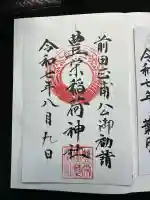 前田正甫公御勧請
豊栄稲荷神社
令和七年八月九日
令和七年